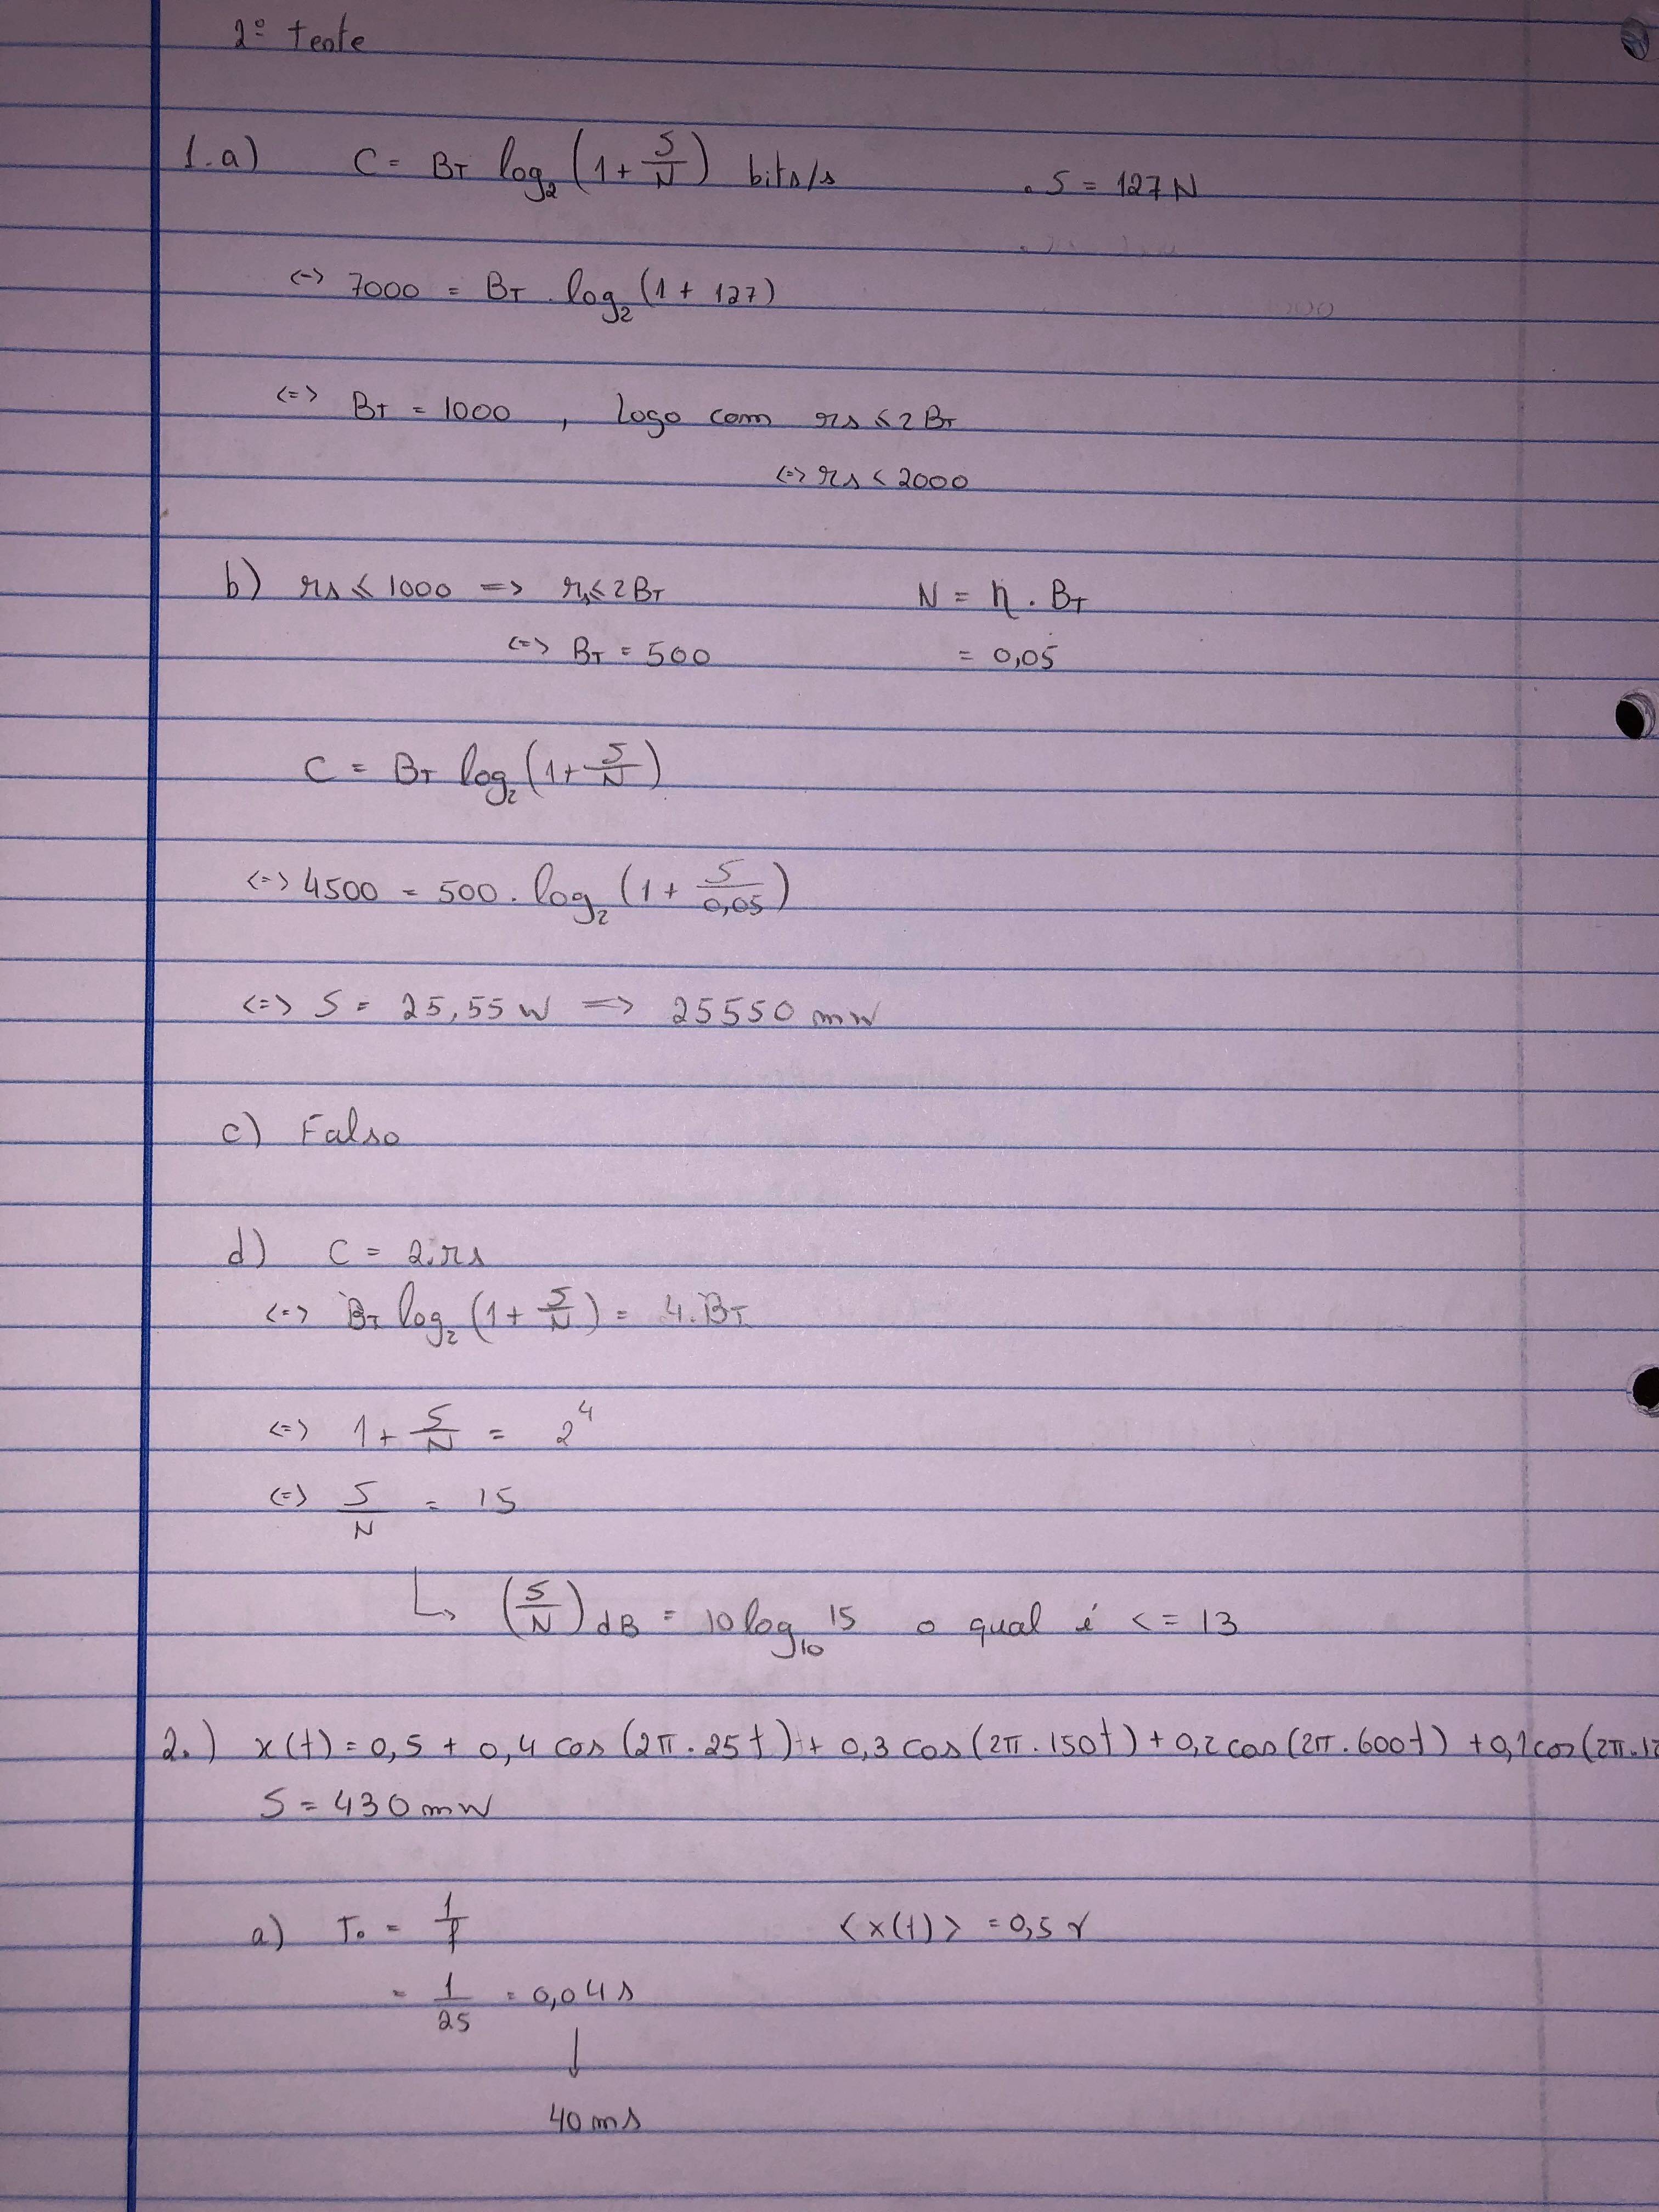 2º teste
1.a) C = BT log2 (1 + S/N) bits/s . S = 127N
<=> 7000 = BT . log2 (1 + 127)
<=> BT = 1000 , logo com rs ≤ 2BT
<=> rs < 2000
b) rs ≤ 1000 => rs ≤ 2BT N = η . BT
<=> BT = 500 = 0,05
C = BT log2 (1 + S/N)
<=> 4500 = 500 . log2 (1 + S/0,05)
<=> S = 25,55 W => 25550 mW
c) Falso
d) C = 2.rs
<=> BT log2 (1 + S/N) = 4.BT
<=> 1 + S/N = 2^4
<=> S/N = 15
↳ (S/N)dB = 10 log10 15 o qual é <= 13
2.) x(t) = 0,5 + 0,4 cos (2π . 25t) + 0,3 cos (2π . 150t) + 0,2 cos (2π . 600t) + 0,1 cos (2π.12
S = 430 mW
a) To = 1/f <x(t)> = 0,5 V
= 1/25 = 0,04 s
↓
40 ms